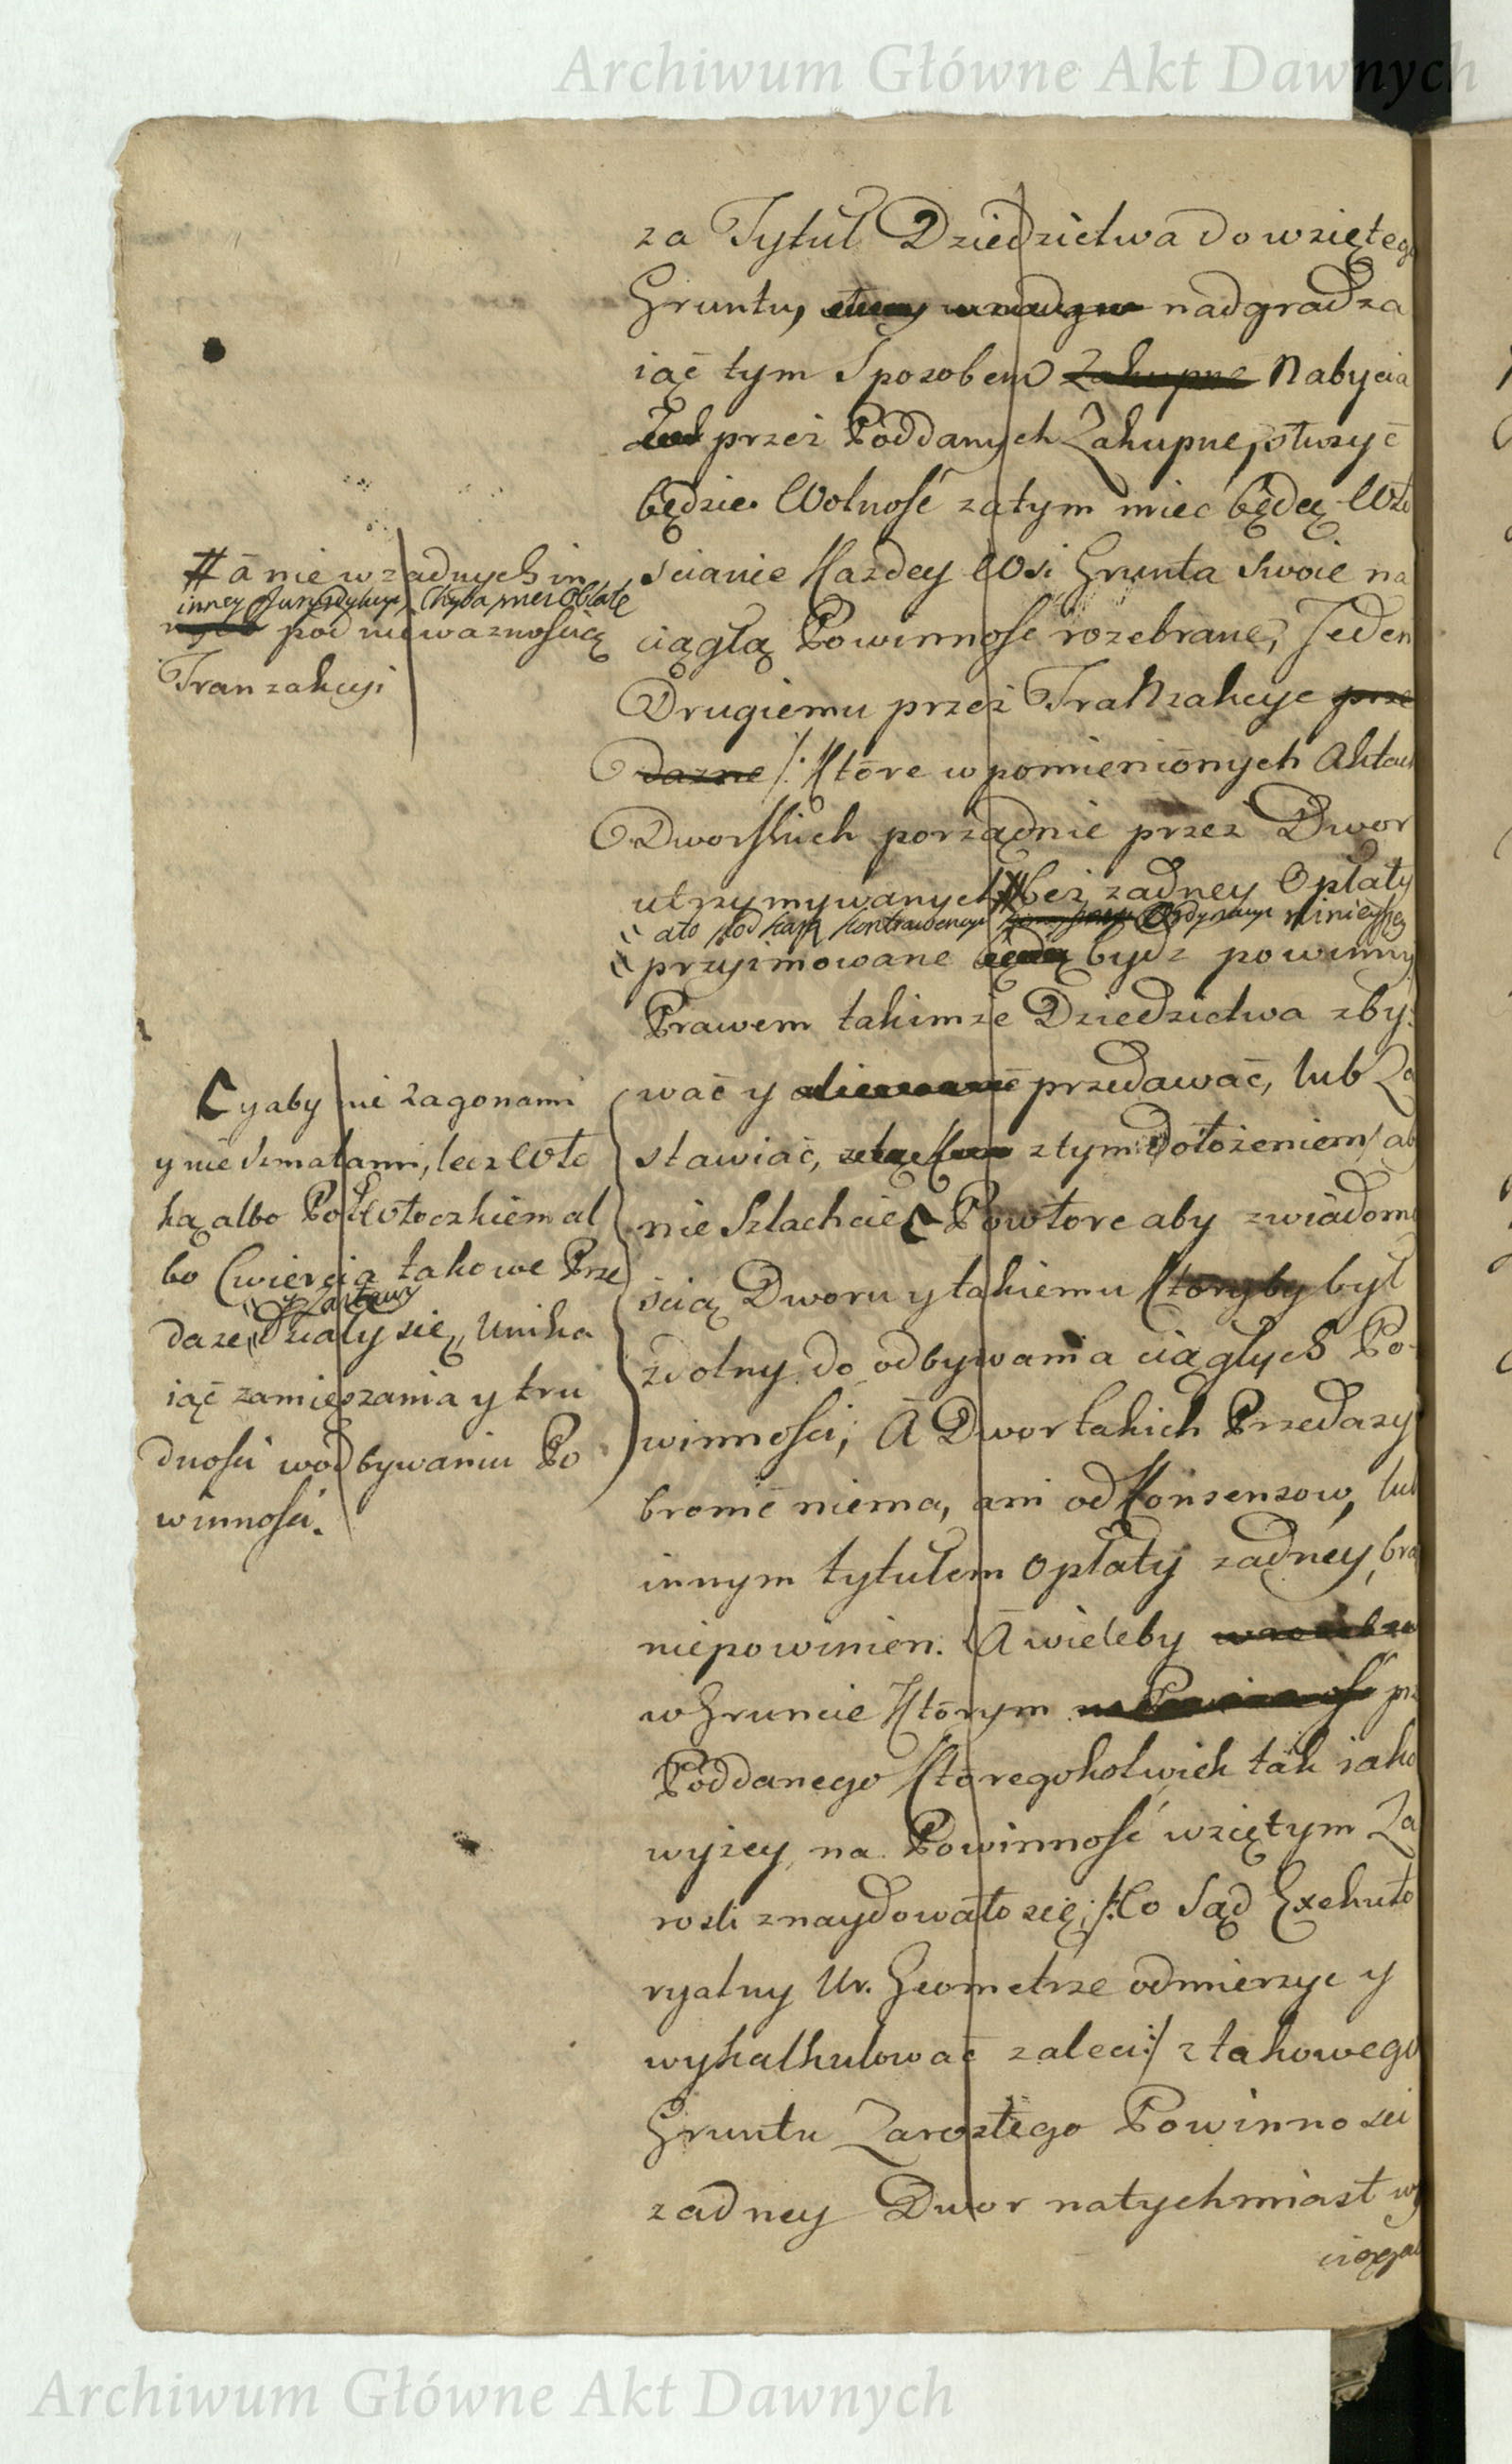 Archiwum Główne Akt Dawnych
za Tytuł Dziedzictwa do wziętego
Gruntu, nadgradza
iąć tym Sposobem Zakupne Nabycia
przez Poddanych Zakupne, słuzyć
będzie. Wolność zatym miec będą Wło
scianie Kazdey Wsi Grunta swoie na
ciągłą Powinność rozebrane, Jeden
Drugiemu przez Tranzakcye prze
dazne /: Ktore w pomienionych Aktach
Dworskich porządnie przez Dwor
utrzymywanych # bez zadney Opłaty
ato pod karą kontrawencyi Ordynacyi ninieyszey
przyimowane będą bydz powinny
Prawem takimze Dziedzictwa zby:
wać y alienować przedawać, lub Za
stawiać, z tym dołożeniem aby
nie Szlachcie Powtore aby z wiadomo
scią Dworu y takiemu ktoryby był
zdolny do odbywania ciągłych Po-
winności; A Dwor takich Przedazy
bronić niema, ani od Konsensow, lub
innym tytułem Opłaty zadney, bra
niepowinien. A wieleby
w Gruncie Ktorym prz
Poddanego Ktoregokolwiek tak iako
wyzey na Powinność wziętym Za
rosli znaydowało się; /: Co Sąd Exekuto
ryalny Ur. Geometrze odmierzyc y
wykalkulować zaleci :/ z takowego
Gruntu Zarosłego Powinnosci
zadney Dwor natychmiast wy
ciągać
# a nie w zadnych in
inney Jurysdykcyi, chyba przez Oblatę
pod niewaznością
Tranzakcyi
y aby nie Zagonami
y nie szmatami, lecz Wło
ką albo Poł Włoczkiem al
bo Cwiercią takowe Prze
y Zastawy
daze Działy się, Unika
iąć zamięszania y tru
dności w odbywaniu Po
winności.
Archiwum Główne Akt Dawnych